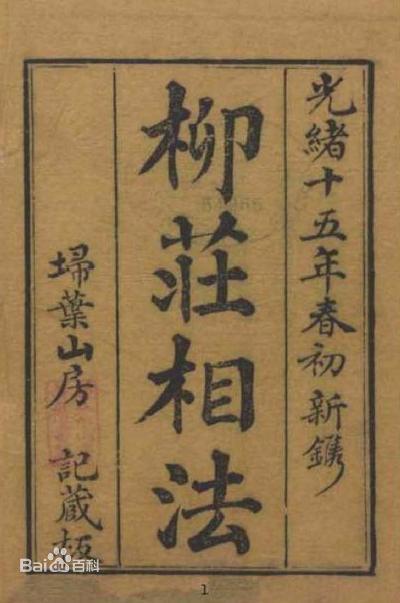 光緒十五年春初新鐫
柳莊相法
埽葉山房 記藏板
54966
Bai百科
1